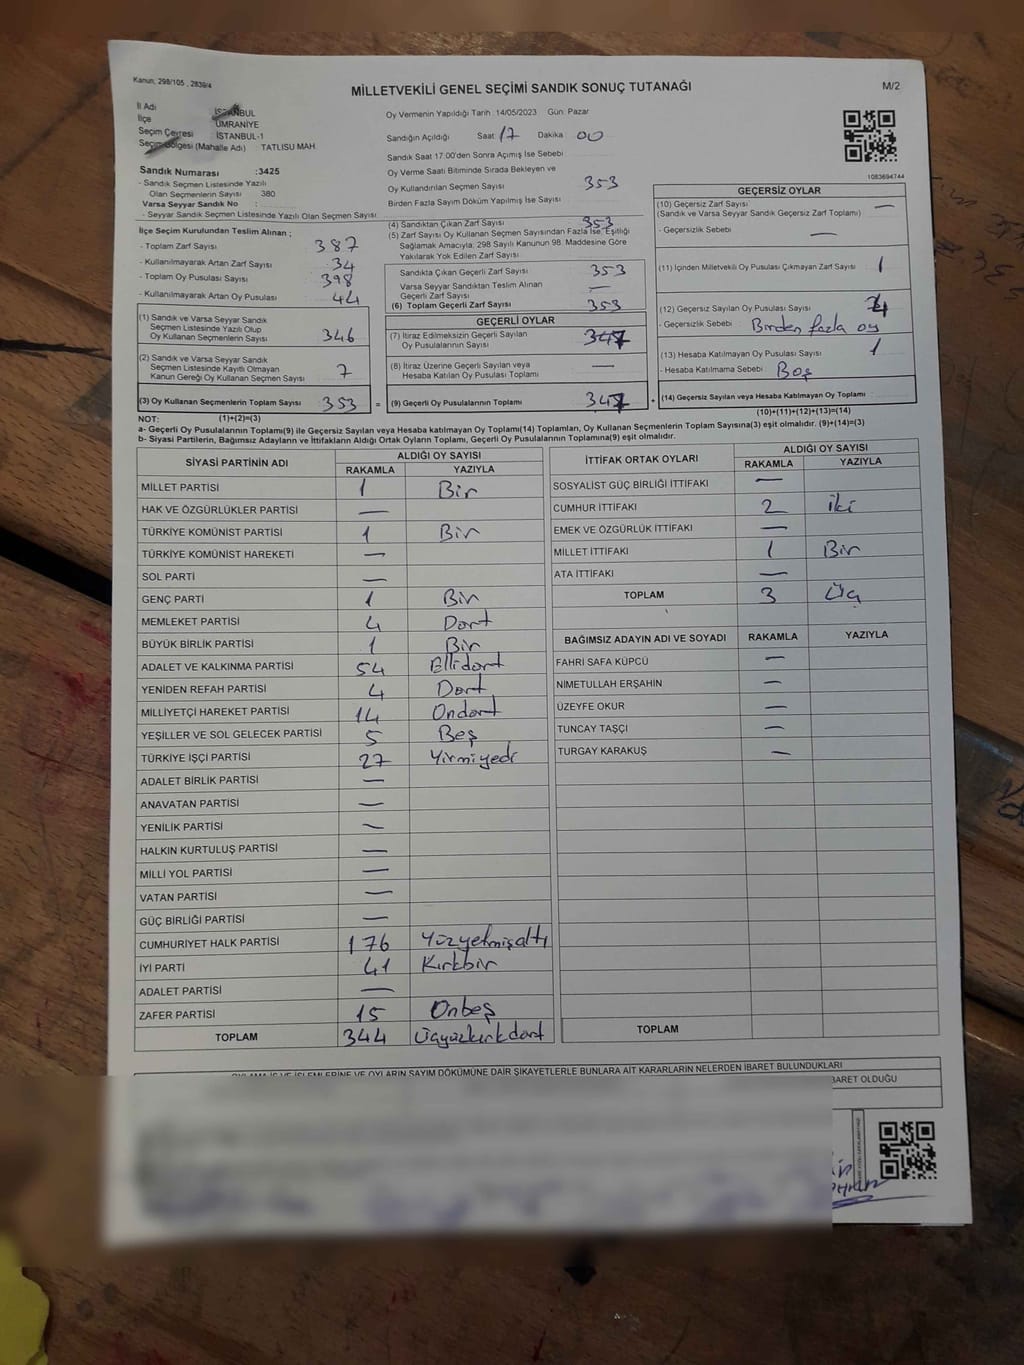 Kanun, 298/105 , 2839/4
MİLLETVEKİLİ GENEL SEÇİMİ SANDIK SONUÇ TUTANAĞI
M/2
İl Adı İSTANBUL
İlçe ÜMRANİYE
Seçim Çevresi İSTANBUL-1
Seçim Bölgesi (Mahalle Adı) : TATLISU MAH.
Sandık Numarası :3425
- Sandık Seçmen Listesinde Yazılı
Olan Seçmenlerin Sayısı 380
Varsa Seyyar Sandık No :
- Seyyar Sandık Seçmen Listesinde Yazılı Olan Seçmen Sayısı :
Oy Vermenin Yapıldığı Tarih :14/05/2023 Gün: Pazar
Sandığın Açıldığı Saat 17 Dakika 00
Sandık Saat 17:00'den Sonra Açımış İse Sebebi
Oy Verme Saati Bitiminde Sırada Bekleyen ve
Oy Kullandırılan Seçmen Sayısı 353
Birden Fazla Sayım Döküm Yapılmış İse Sayısı
1083694744
İlçe Seçim Kurulundan Teslim Alınan ;
- Toplam Zarf Sayısı 387
- Kullanılmayarak Artan Zarf Sayısı 34
- Toplam Oy Pusulası Sayısı 398
- Kullanılmayarak Artan Oy Pusulası 44
(1) Sandık ve Varsa Seyyar Sandık
Seçmen Listesinde Yazılı Olup
Oy Kullanan Seçmenlerin Sayısı 346
(2) Sandık ve Varsa Seyyar Sandık
Seçmen Listesinde Kayıtlı Olmayan
Kanun Gereği Oy Kullanan Seçmen Sayısı 7
(3) Oy Kullanan Seçmenlerin Toplam Sayısı 353 =
(4) Sandıktan Çıkan Zarf Sayısı 353
(5) Zarf Sayısı Oy Kullanan Seçmen Sayısından Fazla İse, Eşitliği
Sağlamak Amacıyla; 298 Sayılı Kanunun 98. Maddesine Göre
Yakılarak Yok Edilen Zarf Sayısı
Sandıkta Çıkan Geçerli Zarf Sayısı 353
Varsa Seyyar Sandıktan Teslim Alınan
Geçerli Zarf Sayısı —
(6) Toplam Geçerli Zarf Sayısı 353
GEÇERLİ OYLAR
(7) İtiraz Edilmeksizin Geçerli Sayılan
Oy Pusulalarının Sayısı 347
(8) İtiraz Üzerine Geçerli Sayılan veya
Hesaba Katılan Oy Pusulası Toplamı —
(9) Geçerli Oy Pusulalarının Toplamı 347 +
GEÇERSİZ OYLAR
(10) Geçersiz Zarf Sayısı —
(Sandık ve Varsa Seyyar Sandık Geçersiz Zarf Toplamı)
- Geçersizlik Sebebi —
(11) İçinden Milletvekili Oy Pusulası Çıkmayan Zarf Sayısı 1
(12) Geçersiz Sayılan Oy Pusulası Sayısı
- Geçersizlik Sebebi Birden fazla oy
(13) Hesaba Katılmayan Oy Pusulası Sayısı 1
- Hesaba Katılmama Sebebi Boş
(14) Geçersiz Sayılan veya Hesaba Katılmayan Oy Toplamı :
NOT: (1)+(2)=(3)
(10)+(11)+(12)+(13)=(14)
a- Geçerli Oy Pusulalarının Toplamı(9) ile Geçersiz Sayılan veya Hesaba katılmayan Oy Toplamı(14) Toplamları, Oy Kullanan Seçmenlerin Toplam Sayısına(3) eşit olmalıdır. (9)+(14)=(3)
b- Siyasi Partilerin, Bağımsız Adayların ve İttifakların Aldığı Ortak Oyların Toplamı, Geçerli Oy Pusulalarının Toplamına(9) eşit olmalıdır.
SİYASİ PARTİNİN ADI ALDIĞI OY SAYISI
RAKAMLA YAZIYLA
MİLLET PARTİSİ 1 Bir
HAK VE ÖZGÜRLÜKLER PARTİSİ —
TÜRKİYE KOMÜNİST PARTİSİ 1 Bir
TÜRKİYE KOMÜNİST HAREKETİ —
SOL PARTİ —
GENÇ PARTİ 1 Bir
MEMLEKET PARTİSİ 4 Dört
BÜYÜK BİRLİK PARTİSİ 1 Bir
ADALET VE KALKINMA PARTİSİ 54 Ellidört
YENİDEN REFAH PARTİSİ 4 Dört
MİLLİYETÇİ HAREKET PARTİSİ 14 Ondört
YEŞİLLER VE SOL GELECEK PARTİSİ 5 Beş
TÜRKİYE İŞÇİ PARTİSİ 27 Yirmiyedi
ADALET BİRLİK PARTİSİ —
ANAVATAN PARTİSİ —
YENİLİK PARTİSİ —
HALKIN KURTULUŞ PARTİSİ —
MİLLİ YOL PARTİSİ —
VATAN PARTİSİ —
GÜÇ BİRLİĞİ PARTİSİ —
CUMHURİYET HALK PARTİSİ 176 Yüzyetmişaltı
İYİ PARTİ 41 Kırkbir
ADALET PARTİSİ —
ZAFER PARTİSİ 15 Onbeş
TOPLAM 344 Üçyüzkırkdört
İTTİFAK ORTAK OYLARI ALDIĞI OY SAYISI
RAKAMLA YAZIYLA
SOSYALİST GÜÇ BİRLİĞİ İTTİFAKI —
CUMHUR İTTİFAKI 2 iki
EMEK VE ÖZGÜRLÜK İTTİFAKI —
MİLLET İTTİFAKI 1 Bir
ATA İTTİFAKI —
TOPLAM 3 Üç
BAĞIMSIZ ADAYIN ADI VE SOYADI RAKAMLA YAZIYLA
FAHRİ SAFA KÜPCÜ —
NİMETULLAH ERŞAHİN —
ÜZEYFE OKUR —
TUNCAY TAŞÇI —
TURGAY KARAKUŞ —
TOPLAM
OYLAMA İŞ VE İŞLEMLERİNE VE OYLARIN SAYIM DÖKÜMÜNE DAİR ŞİKAYETLERLE BUNLARA AİT KARARLARIN NELERDEN İBARET BULUNDUKLARI
BARET OLDUĞU